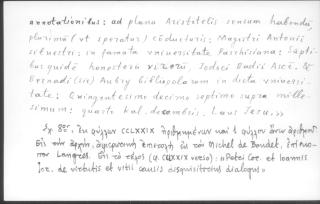 annotationibus: ad planū Aristotelis sensum habendū
plurimū (vt speratur) cōducturis: Magistri Antonii
siluestri: in famata vniuersitate Parrhisiana: Sūpti-
bus quidē honestorū virorū, Iodoci Badii Ascē. &
Bernardi (sic) Aubry Bibliopolarum in dicta vniuersi-
tate; Quingentesimo decimo septimo supra mille-
simum: quarto kal. decembris. Laus Iesu.»
Σχ. 8ον, ἐκ φύλλων CCLXXIX ἠριθμημένων καὶ 1 φύλλου ἄνευ ἀριθμοῦ
Εἰς τὴν ἀρχὴν, ἀφιερωτικὴ ἐπιστολὴ εἰς τὸν Michel de Boudet, ἐπίσκο-
πον Langres. Εἰς τὸ τέλος (φ. CCLXXIX verso): «Petri Cor. et Ioannis
de virtutis et vitii causis disquisitorius dialogus»